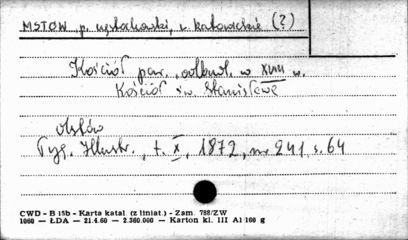 MSTÓW p. częstochowski, w. katowickie (?)
Kościół par., odbud. w XVIII w.
Kościół św. Stanisława
Mstów
Tyg. Illustr., t. X, 1872, nr 241, s. 64
CWD - B 15b - Karta katal. (z liniat.) - Zam. 788/ZW
1060 — ŁDA — 21.4.60 — 2.360.000 — Karton kl. III A1 100 g